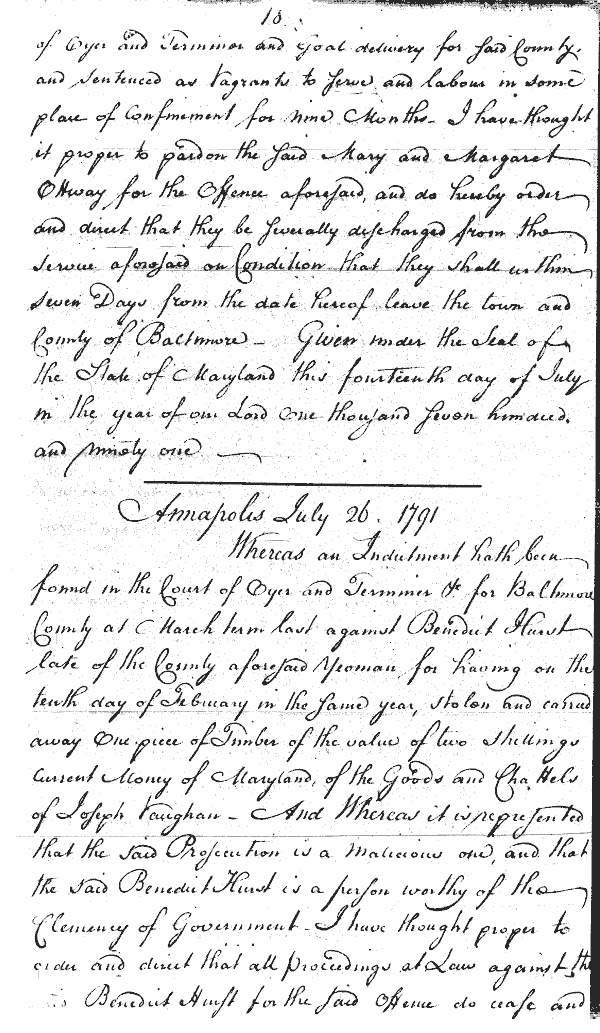 18.
of Oyer and Terminer and Goal delivery for said County.
and sentenced as Vagrants to serve and labour in some
place of Confinement for nine Months - I have thought
it proper to pardon the said Mary and Margaret
Ottway for the Offence aforesaid, and do hereby order
and direct that they be severally discharged from the
service aforesaid on Condition that they shall within
seven Days from the date hereof leave the town and
County of Baltimore - Given under the Seal of
the State of Maryland this fourteenth day of July
in the year of our Lord One thousand seven hundred,
and ninety one
Annapolis July 26. 1791
Whereas an Indictment hath been
found in the Court of Oyer and Terminer &c for Baltimore
County at March term last against Benedict Hurst
late of the County aforesaid Yeoman for having on the
tenth day of February in the same year, stolen and carried
away One piece of Timber of the value of two shillings
Current Money of Maryland, of the Goods and Chattels
of Joseph Vaughan - And Whereas it is represented
that the said Prosecution is a malicious one, and that
the said Benedict Hurst is a person worthy of the
Clemency of Government - I have thought proper to
order and direct that all proceedings at Law against the
Benedict Hurst for the said Offence do cease and